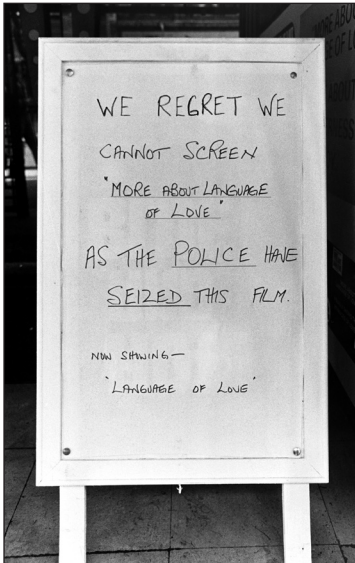 WE REGRET WE
CANNOT SCREEN
"MORE ABOUT LANGUAGE
OF LOVE"
AS THE POLICE HAVE
SEIZED THIS FILM.
NOW SHOWING—
"LANGUAGE OF LOVE"